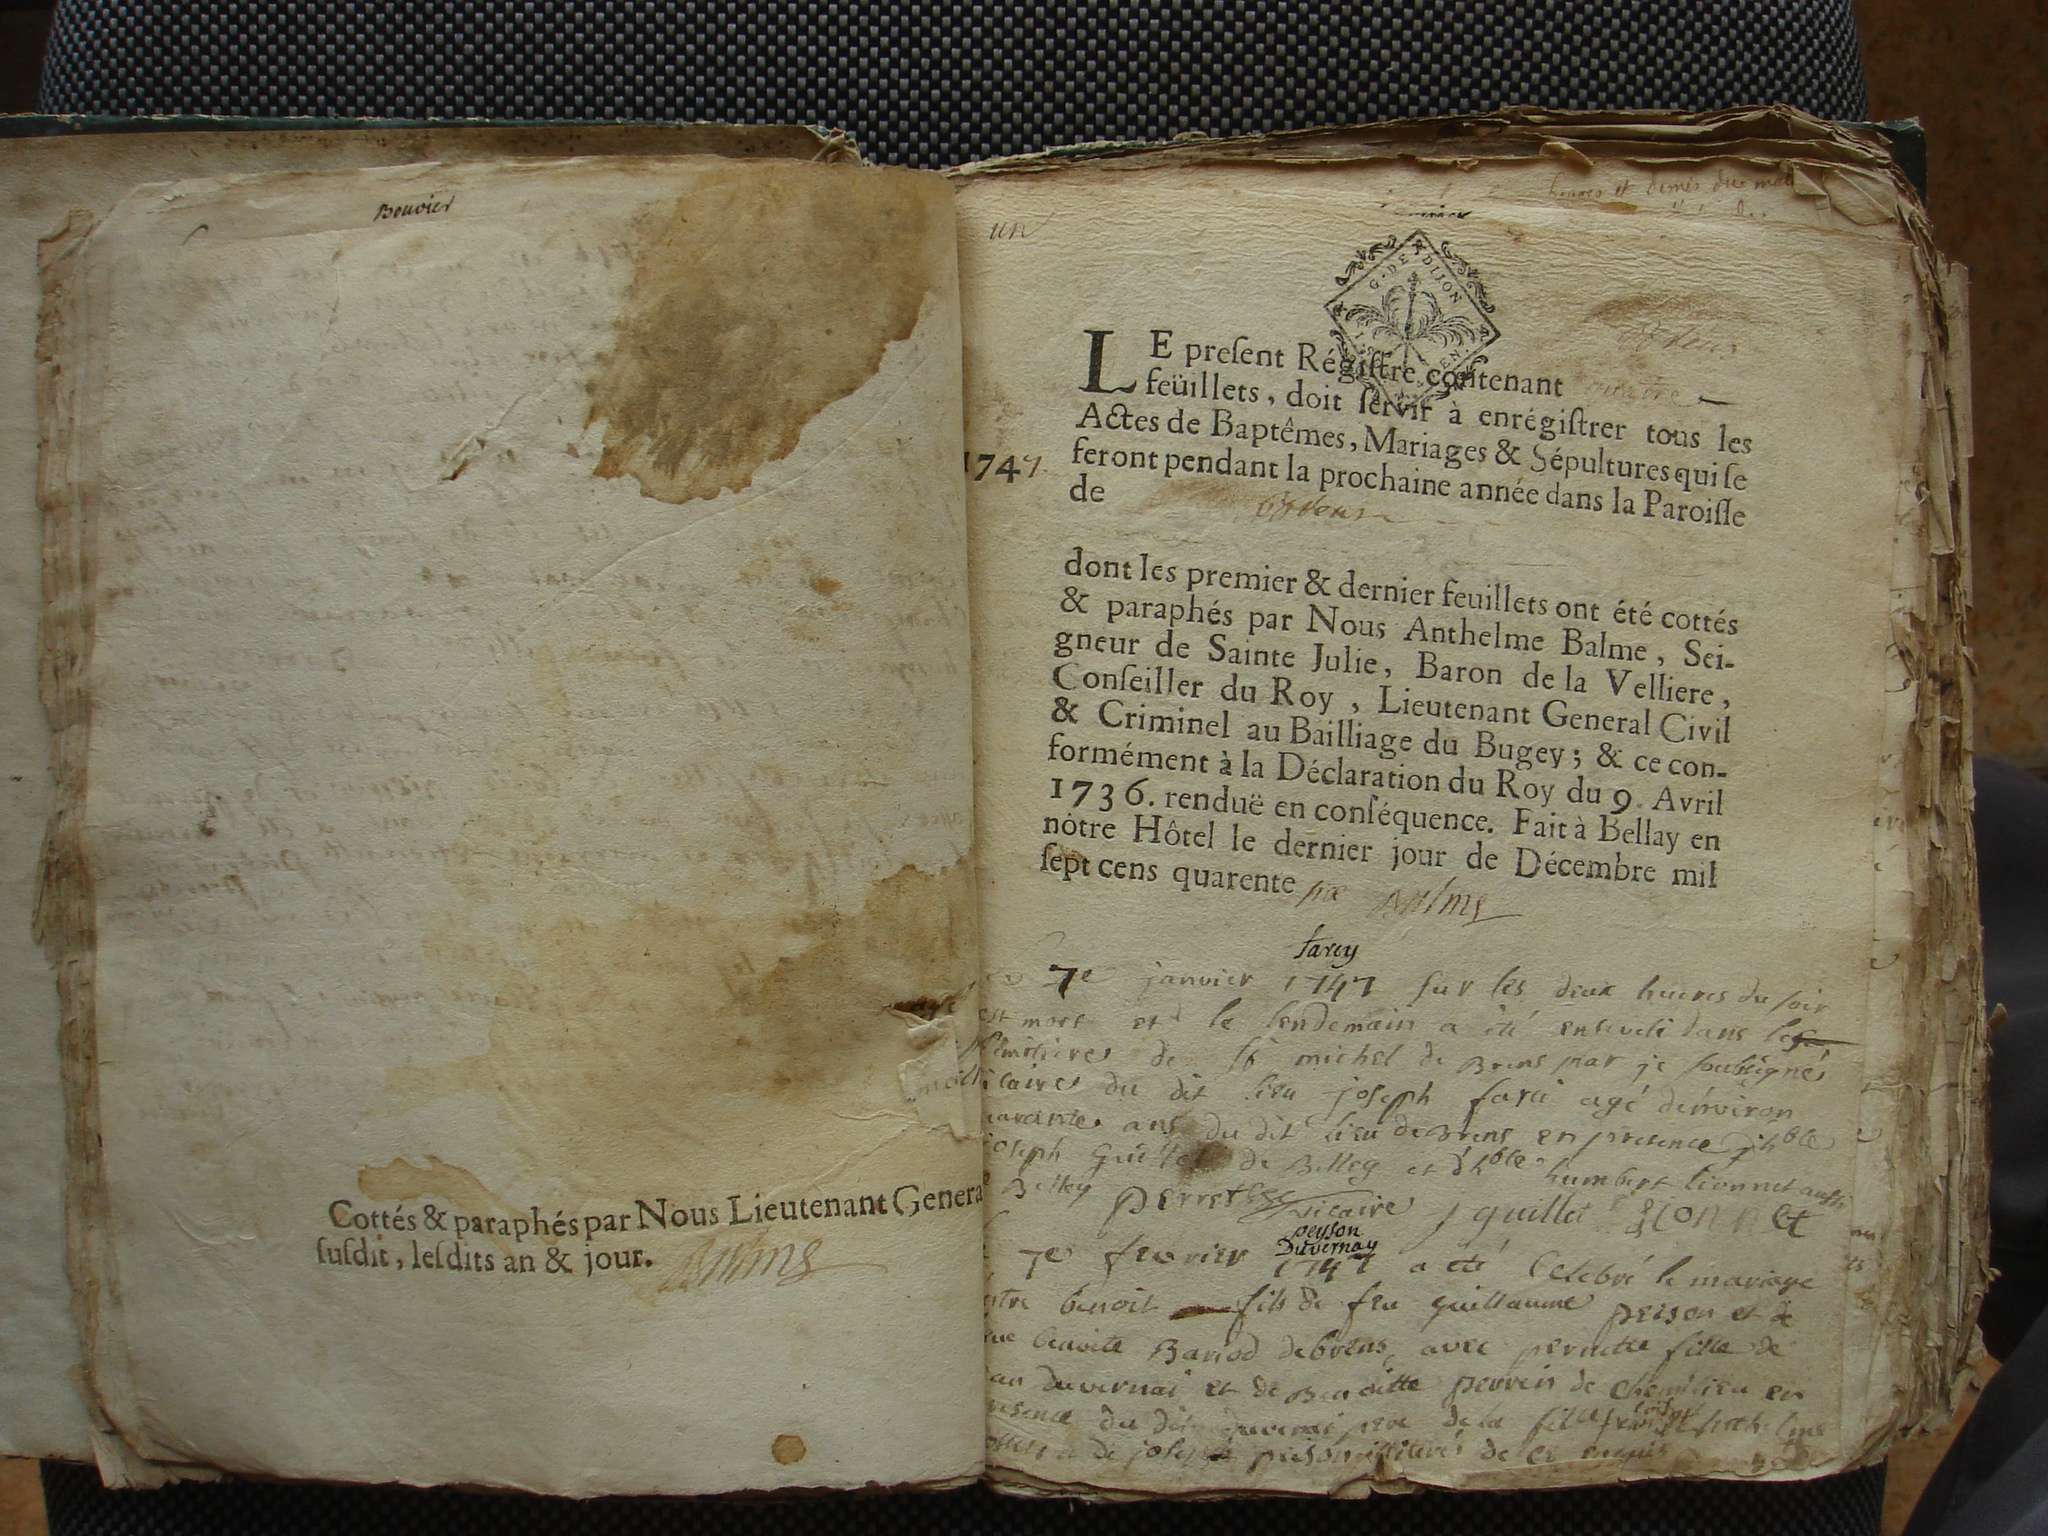 Bouvier
Cottés & paraphés par Nous Lieutenant General
ſuſdit, leſdits an & jour. Balme
un
heures et demis du
G. DE DIJON
LE preſent Régiſtre contenant quatre
feüillets, doit ſervir à enrégiſtrer tous les
Actes de Baptêmes, Mariages & Sépultures qui ſe
1747
feront pendant la prochaine année dans la Paroiſſe
de
dont les premier & dernier feuillets ont été cottés
& paraphés par Nous Anthelme Balme, Sei-
gneur de Sainte Julie, Baron de la Velliere,
Conſeiller du Roy, Lieutenant General Civil
& Criminel au Bailliage du Bugey; & ce con-
formément à la Déclaration du Roy du 9. Avril
1736. renduë en conſéquence. Fait à Bellay en
nôtre Hôtel le dernier jour de Décembre mil
ſept cens quarente six Balme
farcy
7e janvier 1747 sur les deux heures du soir
est mort et le lendemain a été enseveli dans le
de st michel de Brens par je soubsigné
vicaire du dit lieu joseph farci agé d'environ
quarante ans du dit lieu de Brens en presence d'hble
joseph Guillot de Belley et d'hble humbert lionnet aussi
Belley perret vicaire j guillot lionnet
peyson
Duvernay
7e fevrier 1747 a été Celebré le mariage
entre benoit fils de feu guillaume peison et de
benoite Bariod de brens avec pernette fille de
duvernai et de Benoitte perrin de Chemilieu en
presence du dit duvernai pere de la fille
de joseph peison illiterés de ce enquis